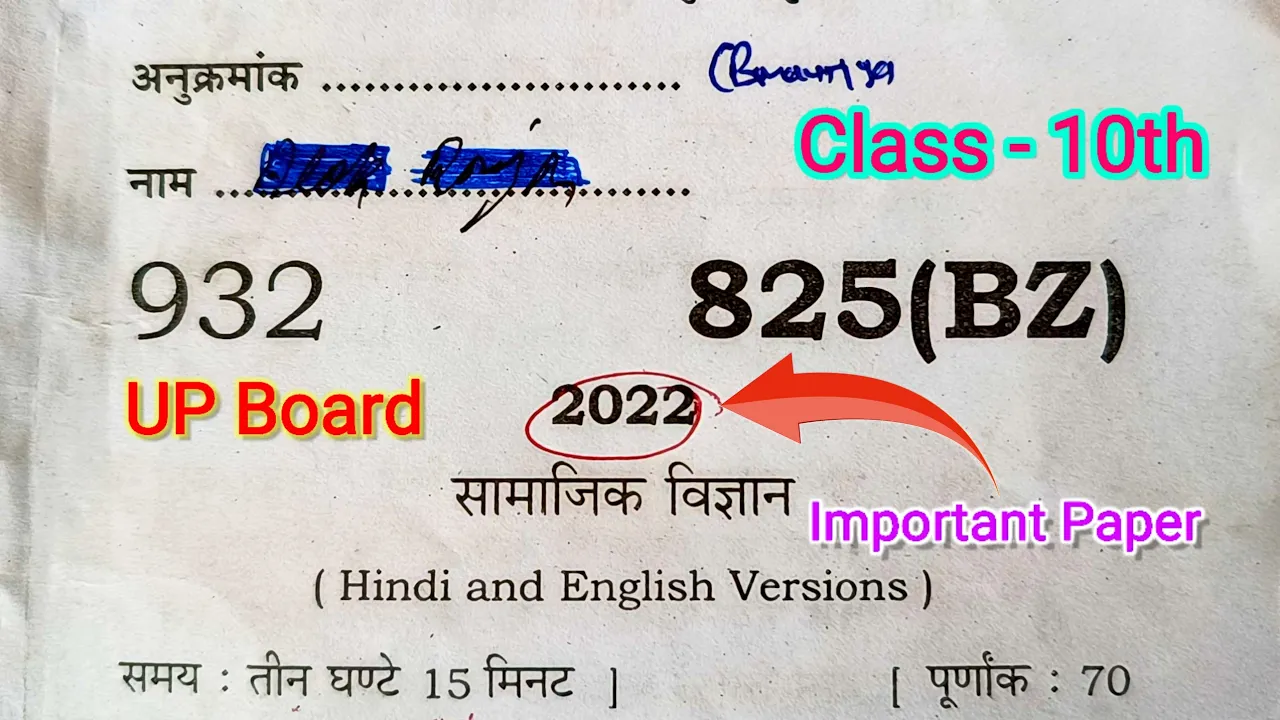 अनुक्रमांक ........................
Class - 10th
नाम ................................
932 825(BZ)
UP Board
2022
सामाजिक विज्ञान
Important Paper
( Hindi and English Versions )
समय : तीन घण्टे 15 मिनट ] [ पूर्णांक : 70